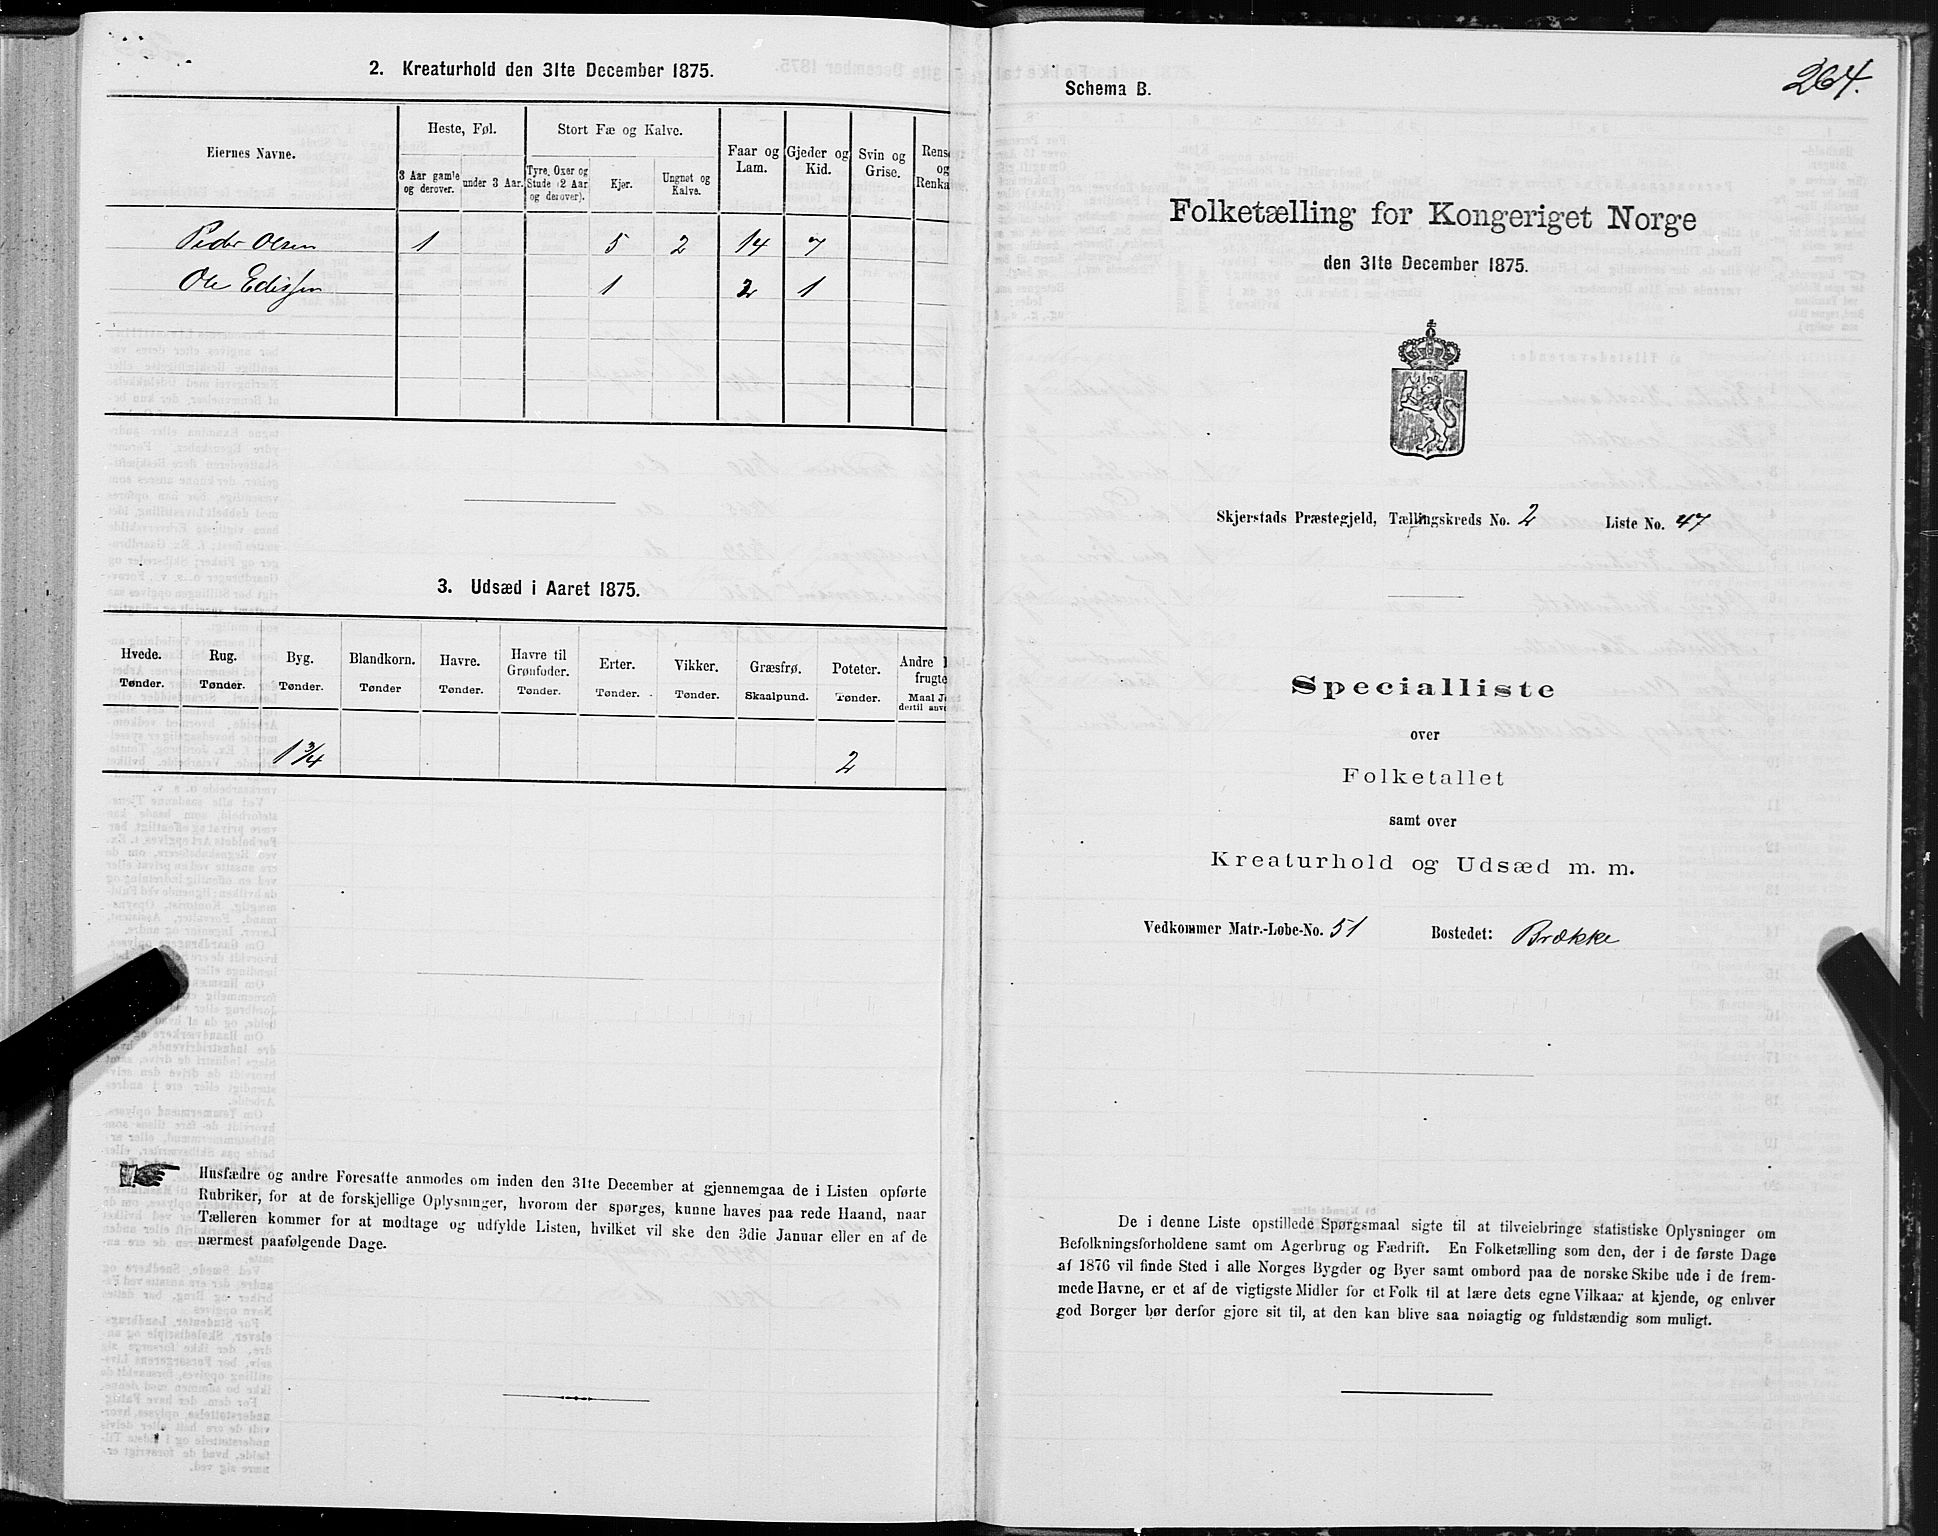 2. Kreaturhold den 31te December 1875.
Eiernes Navne.
Heste, Føl.
Stort Fæ og Kalve.
Faar og Lam.
Gjeder og Kid.
Svin og Grise.
Rens
og
Renka
3 Aar gamle og derover.
under 3 Aar.
Tyre, Oxer og Stude (2 Aar og derover).
Kjør.
Ungnøt og Kalve.
Peder Olsen 1 5 2 14 7
Ole Edissen 1 2 1
3. Udsæd i Aaret 1875.
Hvede. Rug. Byg. Blandkorn. Havre. Havre til Grønfoder. Erter. Vikker. Græsfrø. Poteter. Andre
frugte
Tønder. Tønder. Tønder. Tønder Tønder. Tønder. Tønder. Tønder. Skaalpund. Tønder. Maal
dertil
1 3/4 2
Husfædre og andre Foresatte anmodes om inden den 31te December at gjennemgaa de i Listen opførte
Rubriker, for at de forskjellige Oplysninger, hvorom der spørges, kunne haves paa rede Haand, naar
Tælleren kommer for at modtage og udfylde Listen, hvilket vil ske den 3die Januar eller en af de
nærmest paafølgende Dage.
264.
Schema B.
Folketælling for Kongeriget Norge
den 31te December 1875.
Skjerstads Præstegjeld, Tællingskreds No. 2 Liste No. 47
Specialliste
over
Folketallet
samt over
Kreaturhold og Udsæd m. m.
Vedkommer Matr.-Løbe-No. 51 Bostedet: Brække
De i denne Liste opstillede Spørgsmaal sigte til at tilveiebringe statistiske Oplysninger om
Befolkningsforholdene samt om Agerbrug og Fædrift. En Folketælling som den, der i de første Dage
af 1876 vil finde Sted i alle Norges Bygder og Byer samt ombord paa de norske Skibe ude i de frem-
mede Havne, er et af de vigtigste Midler for et Folk til at lære dets egne Vilkaar at kjende, og enhver
god Borger bør derfor gjøre sit til, at den kan blive saa nøiagtig og fuldstændig som muligt.